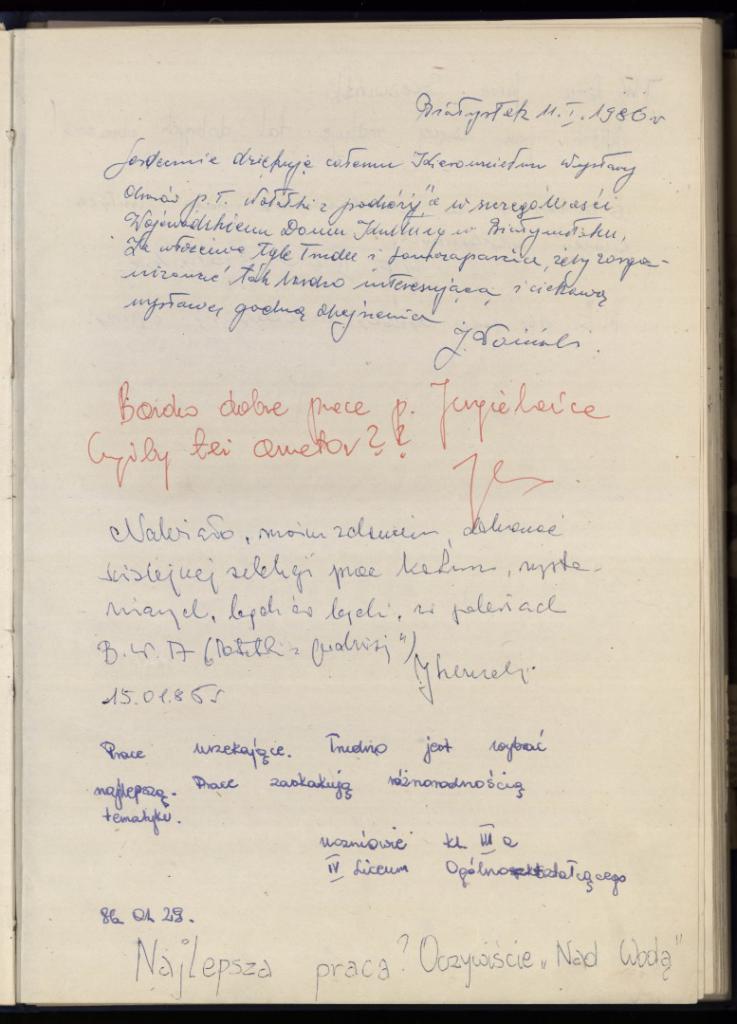 Białystok 11.I.1986 r
Serdecznie dziękuję całemu Kierownictwu Wystawy
obrazów p.t. Notatki z podróży" a w szczególności
Wojewódzkiemu Domu Kultury w Białymstoku,
za włożenie tyle trudu i samozaparcia, żeby zorga-
nizować tak bardzo interesującą i ciekawą
wystawę godną obejrzenia.
Bardzo dobre prace p.
Czyżby też amator??
Należało, moim zdaniem, dokonać
ściślejszej selekcji prac
wysta-
wianych, bądź co bądź, w galeriach
B.W.A ("Notatki z podróży")
15.01.86
Prace urzekające. Trudno jest wybrać
najlepszą. Prace zaskakują różnorodnością
tematyki.
uczniowie kl. III a
IV Liceum Ogólnokształcącego
86.01.29.
Najlepsza praca? Oczywiście „Nad Wodą"